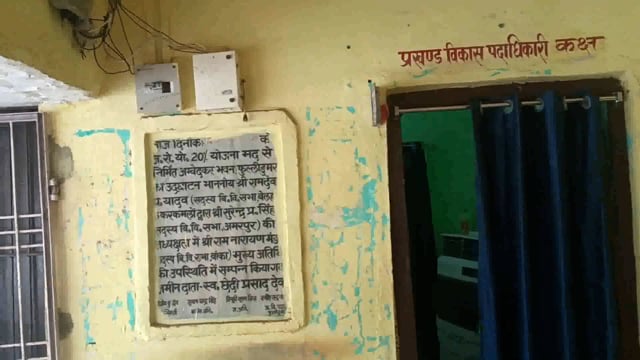 प्रखण्ड विकास पदाधिकारी कक्ष
आज दिनांक के
ज.रो.यो. 20% योजना मद से
निर्मित अम्बेदकर भवन, फुल्लीडुमर
का उद्घाटन माननीय श्री रामदेव
यादव (सदस्य बि.वि.सभा, बेलहर
द्वारा श्री सुरेन्द्र प्र. सिंह
सदस्य बि.वि. सभा, अमरपुर) की
अध्यक्षता में श्री राम नारायण मंड
दस्य बि.वि.सभा, बांका) मुख्य अतिथि
की उपस्थिति में सम्पन्न किया गया
जमीन दाता-स्व. छेदी प्रसाद देव